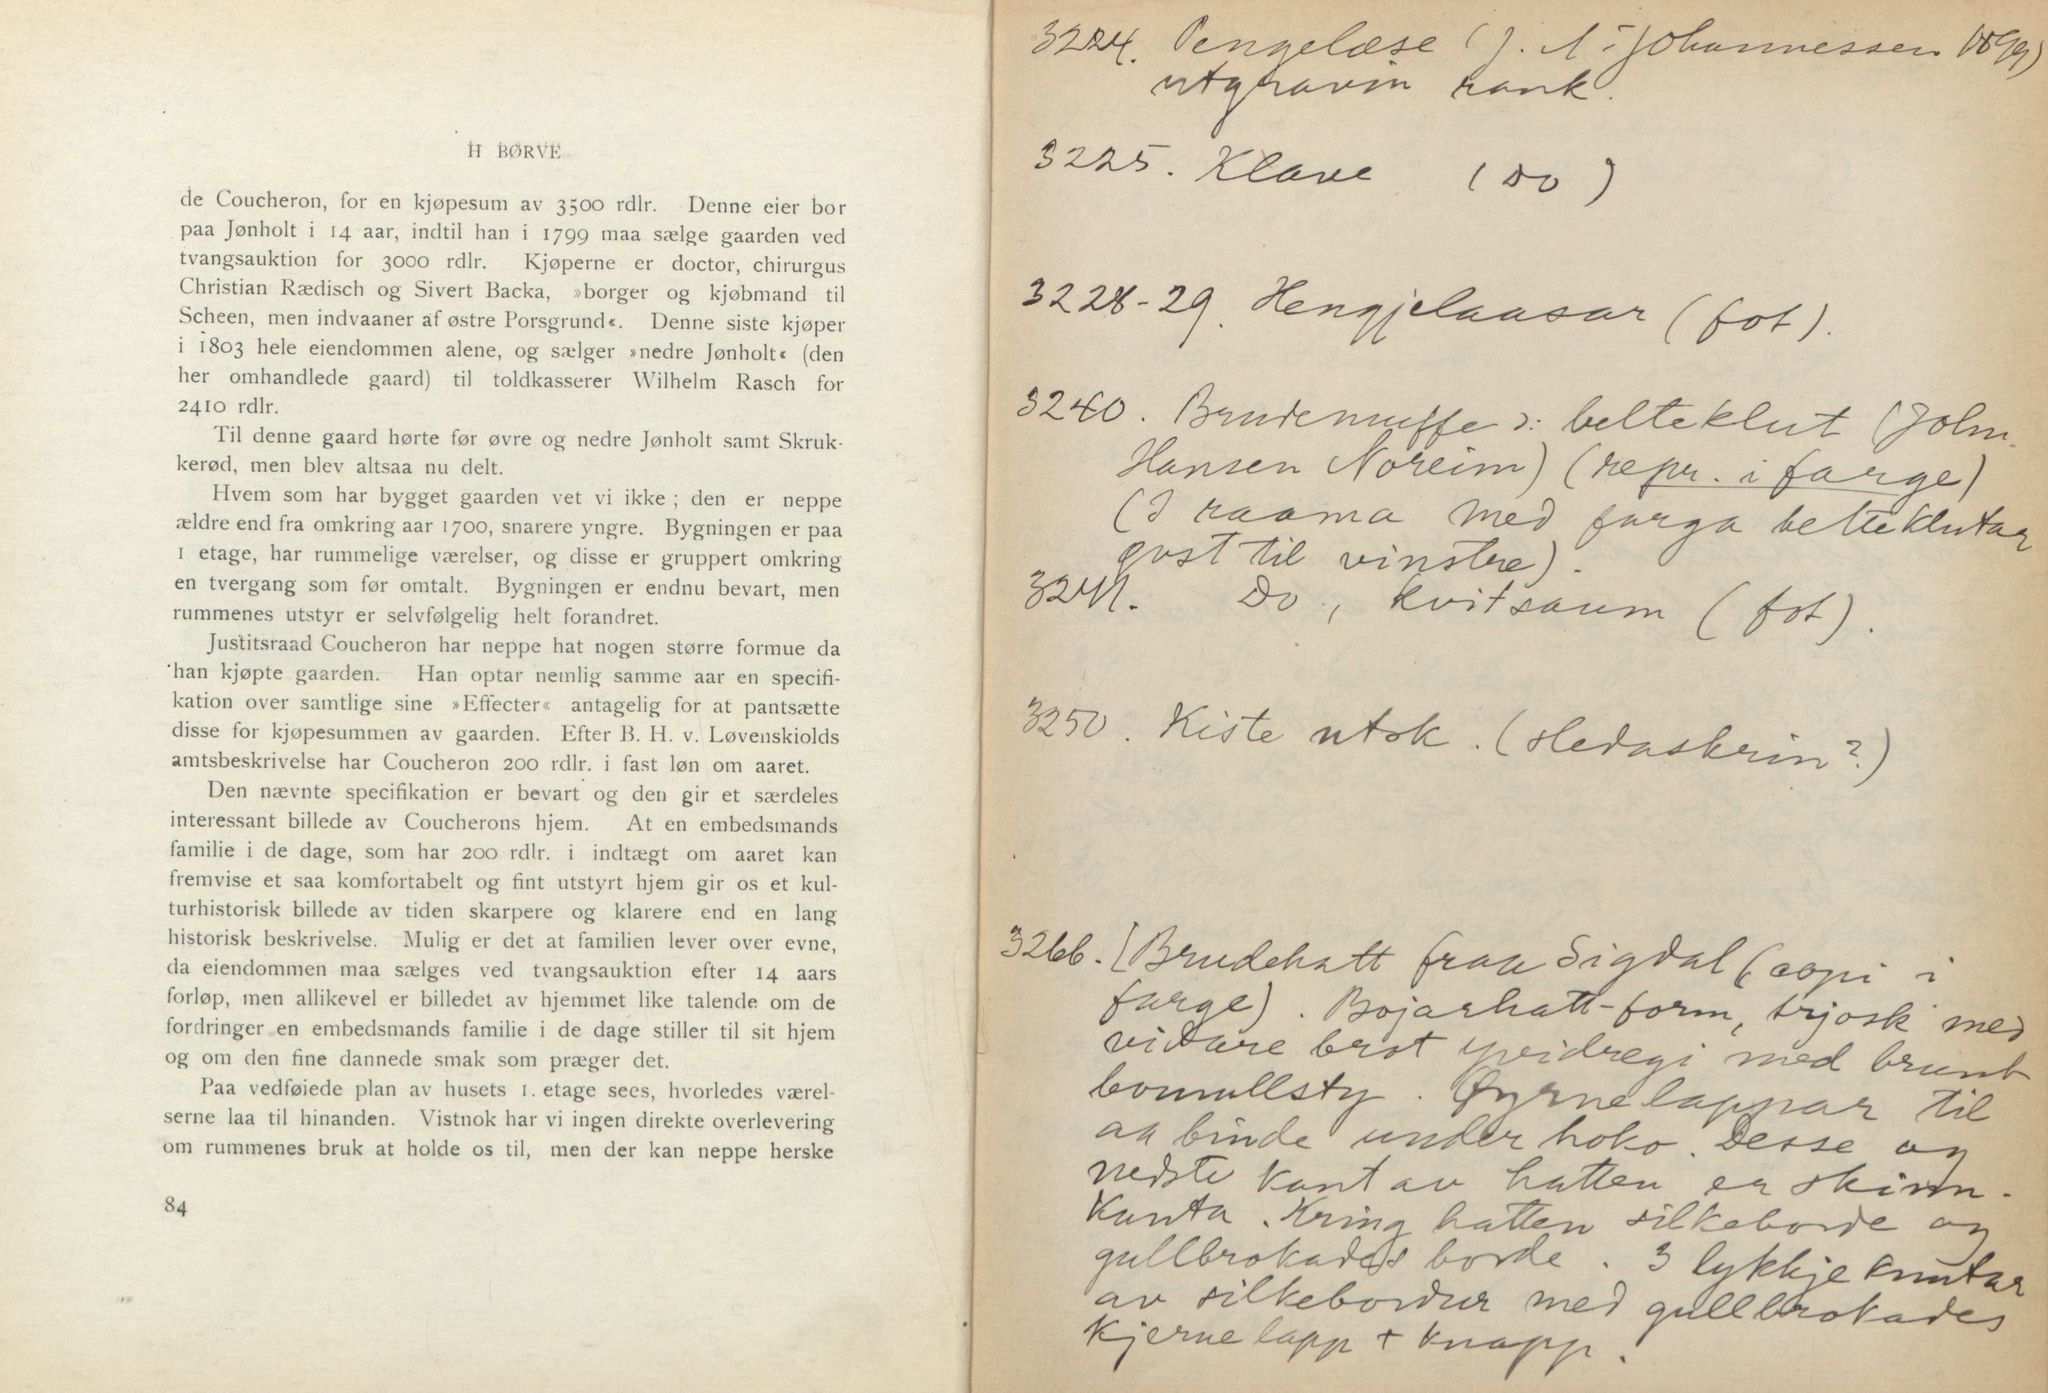 H BØRVE
de Coucheron, for en kjøpesum av 3500 rdlr. Denne eier bor
paa Jønholt i 14 aar, indtil han i 1799 maa sælge gaarden ved
tvangsauktion for 3000 rdlr. Kjøperne er doctor, chirurgus
Christian Rædisch og Sivert Backa, »borger og kjøbmand til
Scheen, men indvaaner af østre Porsgrund«. Denne siste kjøper
i 1803 hele eiendommen alene, og sælger »nedre Jønholt« (den
her omhandlede gaard) til toldkasserer Wilhelm Rasch for
2410 rdlr.
Til denne gaard hørte før øvre og nedre Jønholt samt Skruk-
kerød, men blev altsaa nu delt.
Hvem som har bygget gaarden vet vi ikke; den er neppe
ældre end fra omkring aar 1700, snarere yngre. Bygningen er paa
1 etage, har rummelige værelser, og disse er gruppert omkring
en tvergang som før omtalt. Bygningen er endnu bevart, men
rummenes utstyr er selvfølgelig helt forandret.
Justitsraad Coucheron har neppe hat nogen større formue da
han kjøpte gaarden. Han optar nemlig samme aar en specifi-
kation over samtlige sine »Effecter« antagelig for at pantsætte
disse for kjøpesummen av gaarden. Efter B. H. v. Løvenskiolds
amtsbeskrivelse har Coucheron 200 rdlr. i fast løn om aaret.
Den nævnte specifikation er bevart og den gir et særdeles
interessant billede av Coucherons hjem. At en embedsmands
familie i de dage, som har 200 rdlr. i indtægt om aaret kan
fremvise et saa komfortabelt og fint utstyrt hjem gir os et kul-
turhistorisk billede av tiden skarpere og klarere end en lang
historisk beskrivelse. Mulig er det at familien lever over evne,
da eiendommen maa sælges ved tvangsauktion efter 14 aars
forløp, men allikevel er billedet av hjemmet like talende om de
fordringer en embedsmands familie i de dage stiller til sit hjem
og om den fine dannede smak som præger det.
Paa vedføiede plan av husets 1. etage sees, hvorledes værel-
serne laa til hinanden. Vistnok har vi ingen direkte overlevering
om rummenes bruk at holde os til, men der kan neppe herske
84
3224. Pengelæse (J. Johannessen
utgravin rank.
3225. Klave (Do)
3228-29. Hengjelaasar (fot).
3240. Brudemuffe ɔ: belteklut (John
Hansen Noreim) (repr. i farge)
(I raama med farga belteklutar
gvst til vinstre).
3241. Do, kvitsaum (fot).
3250. Kiste utsk. (sledaskrin?)
3266. [Brudehatt fraa Sigdal (copi i
farge). Bojarhatt-form, trjosk med
vidare brot med brunt
bomullsty. Øyrnelappar til
aa binde under hoko. Desse og
nedste kant av hatten er skinn-
kanta. Kring hatten silkeborde og
gullbrokades borde. 3 lykkjeknutar
av silkebordur med gullbrokades
kjernelapp + knapp.